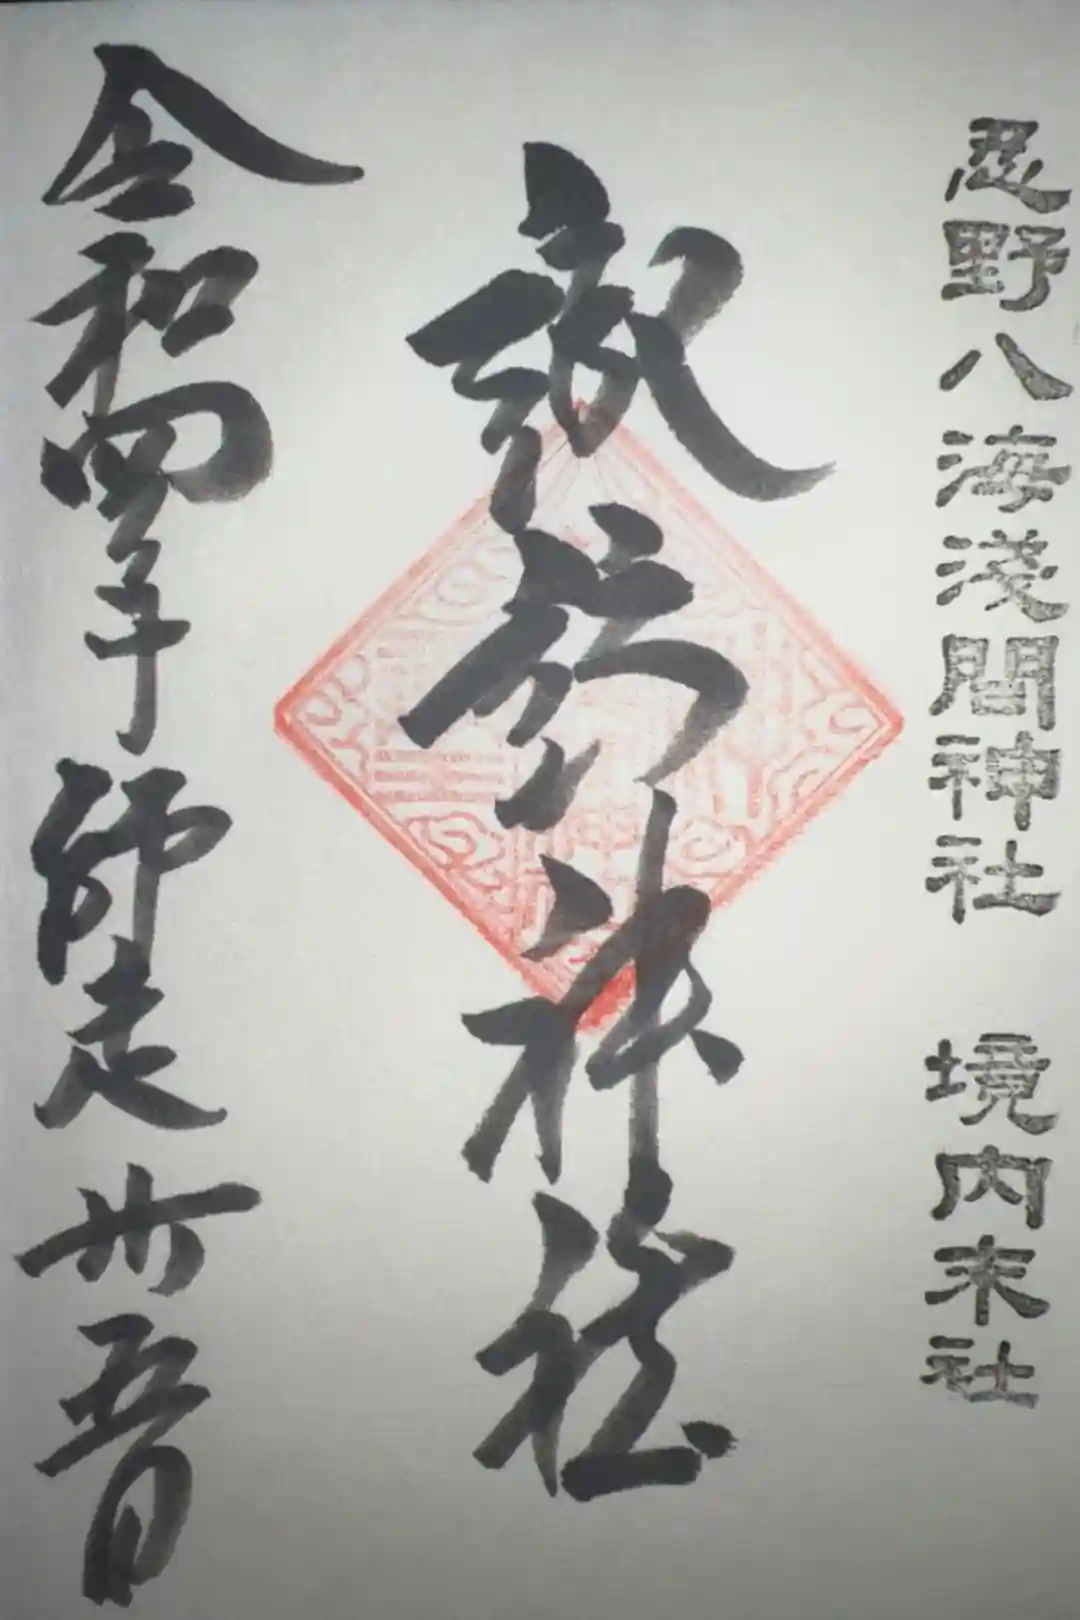 忍野八海淺間神社　境内末社
諏訪神社
令和四年師走廿五日